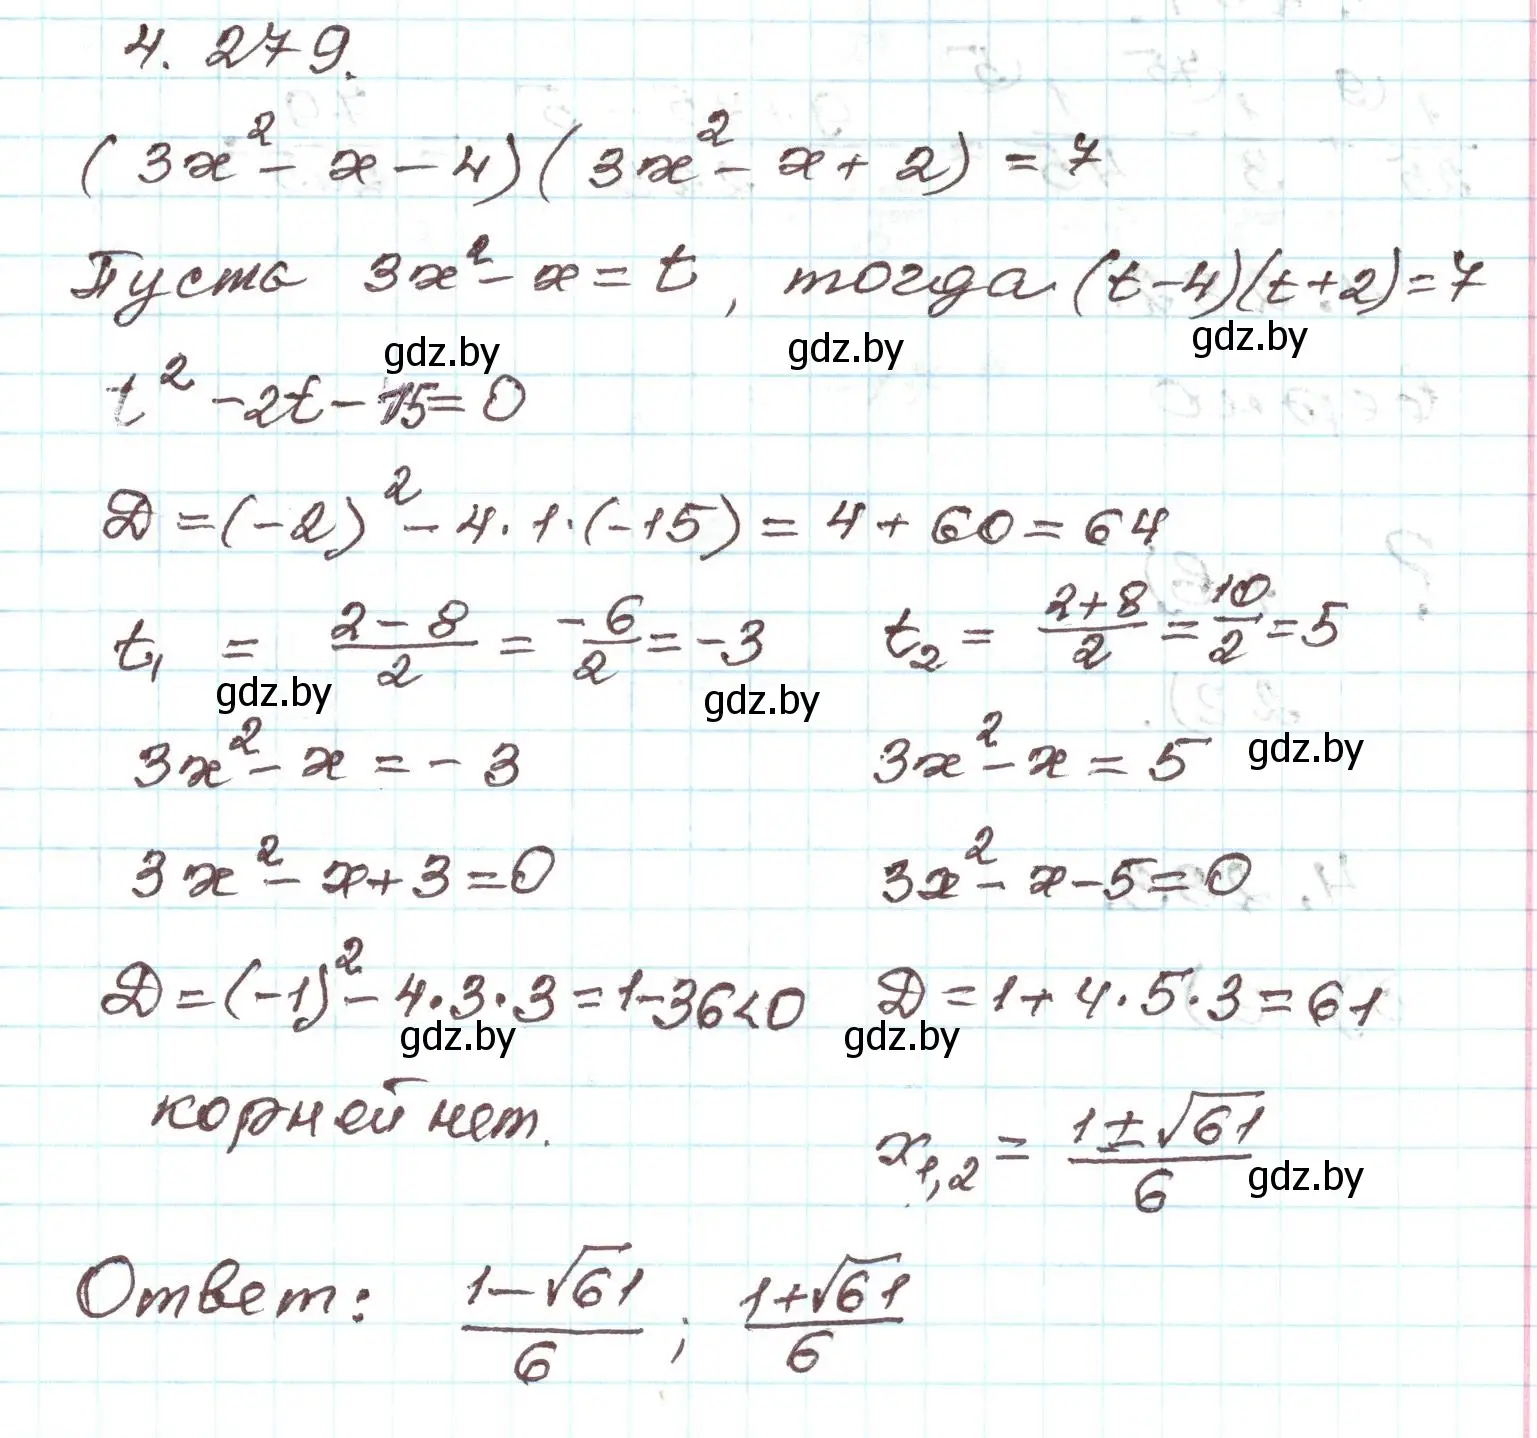 4. 279.
(3x² - x - 4)(3x² - x + 2) = 7
Пусть 3x² - x = t, тогда (t-4)(t+2)=7
gdz.by gdz.by gdz.by
t² - 2t - 15 = 0
Д = (-2)² - 4·1·(-15) = 4 + 60 = 64
t₁ = (2-8)/2 = -6/2 = -3 t₂ = (2+8)/2 = 10/2 = 5
gdz.by gdz.by
3x² - x = -3 3x² - x = 5 gdz.by
3x² - x + 3 = 0 3x² - x - 5 = 0
Д = (-1)² - 4·3·3 = 1-36<0 Д = 1 + 4·5·3 = 61
gdz.by gdz.by
корней нет. x₁,₂ = (1±√61)/6
gdz.by
Ответ: (1-√61)/6 ; (1+√61)/6